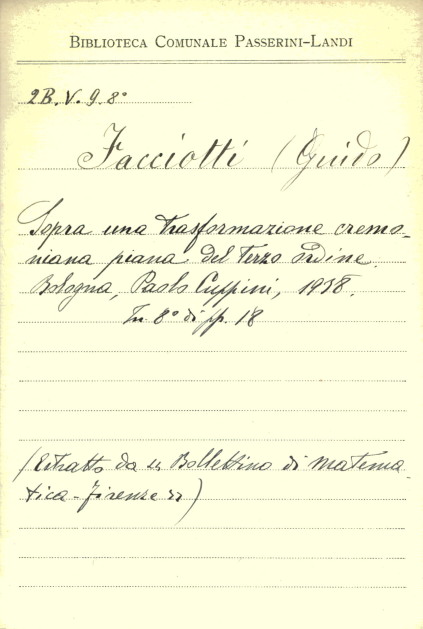 BIBLIOTECA COMUNALE PASSERINI-LANDI
2B.V.9.8°
Facciotti (Guido)
Sopra una trasformazione cremo-
niana piana del terzo ordine.
Bologna, Paolo Cuppini, 1938.
In 8° di pp. 18
(Estratto da "Bollettino di matema-
tica - Firenze")